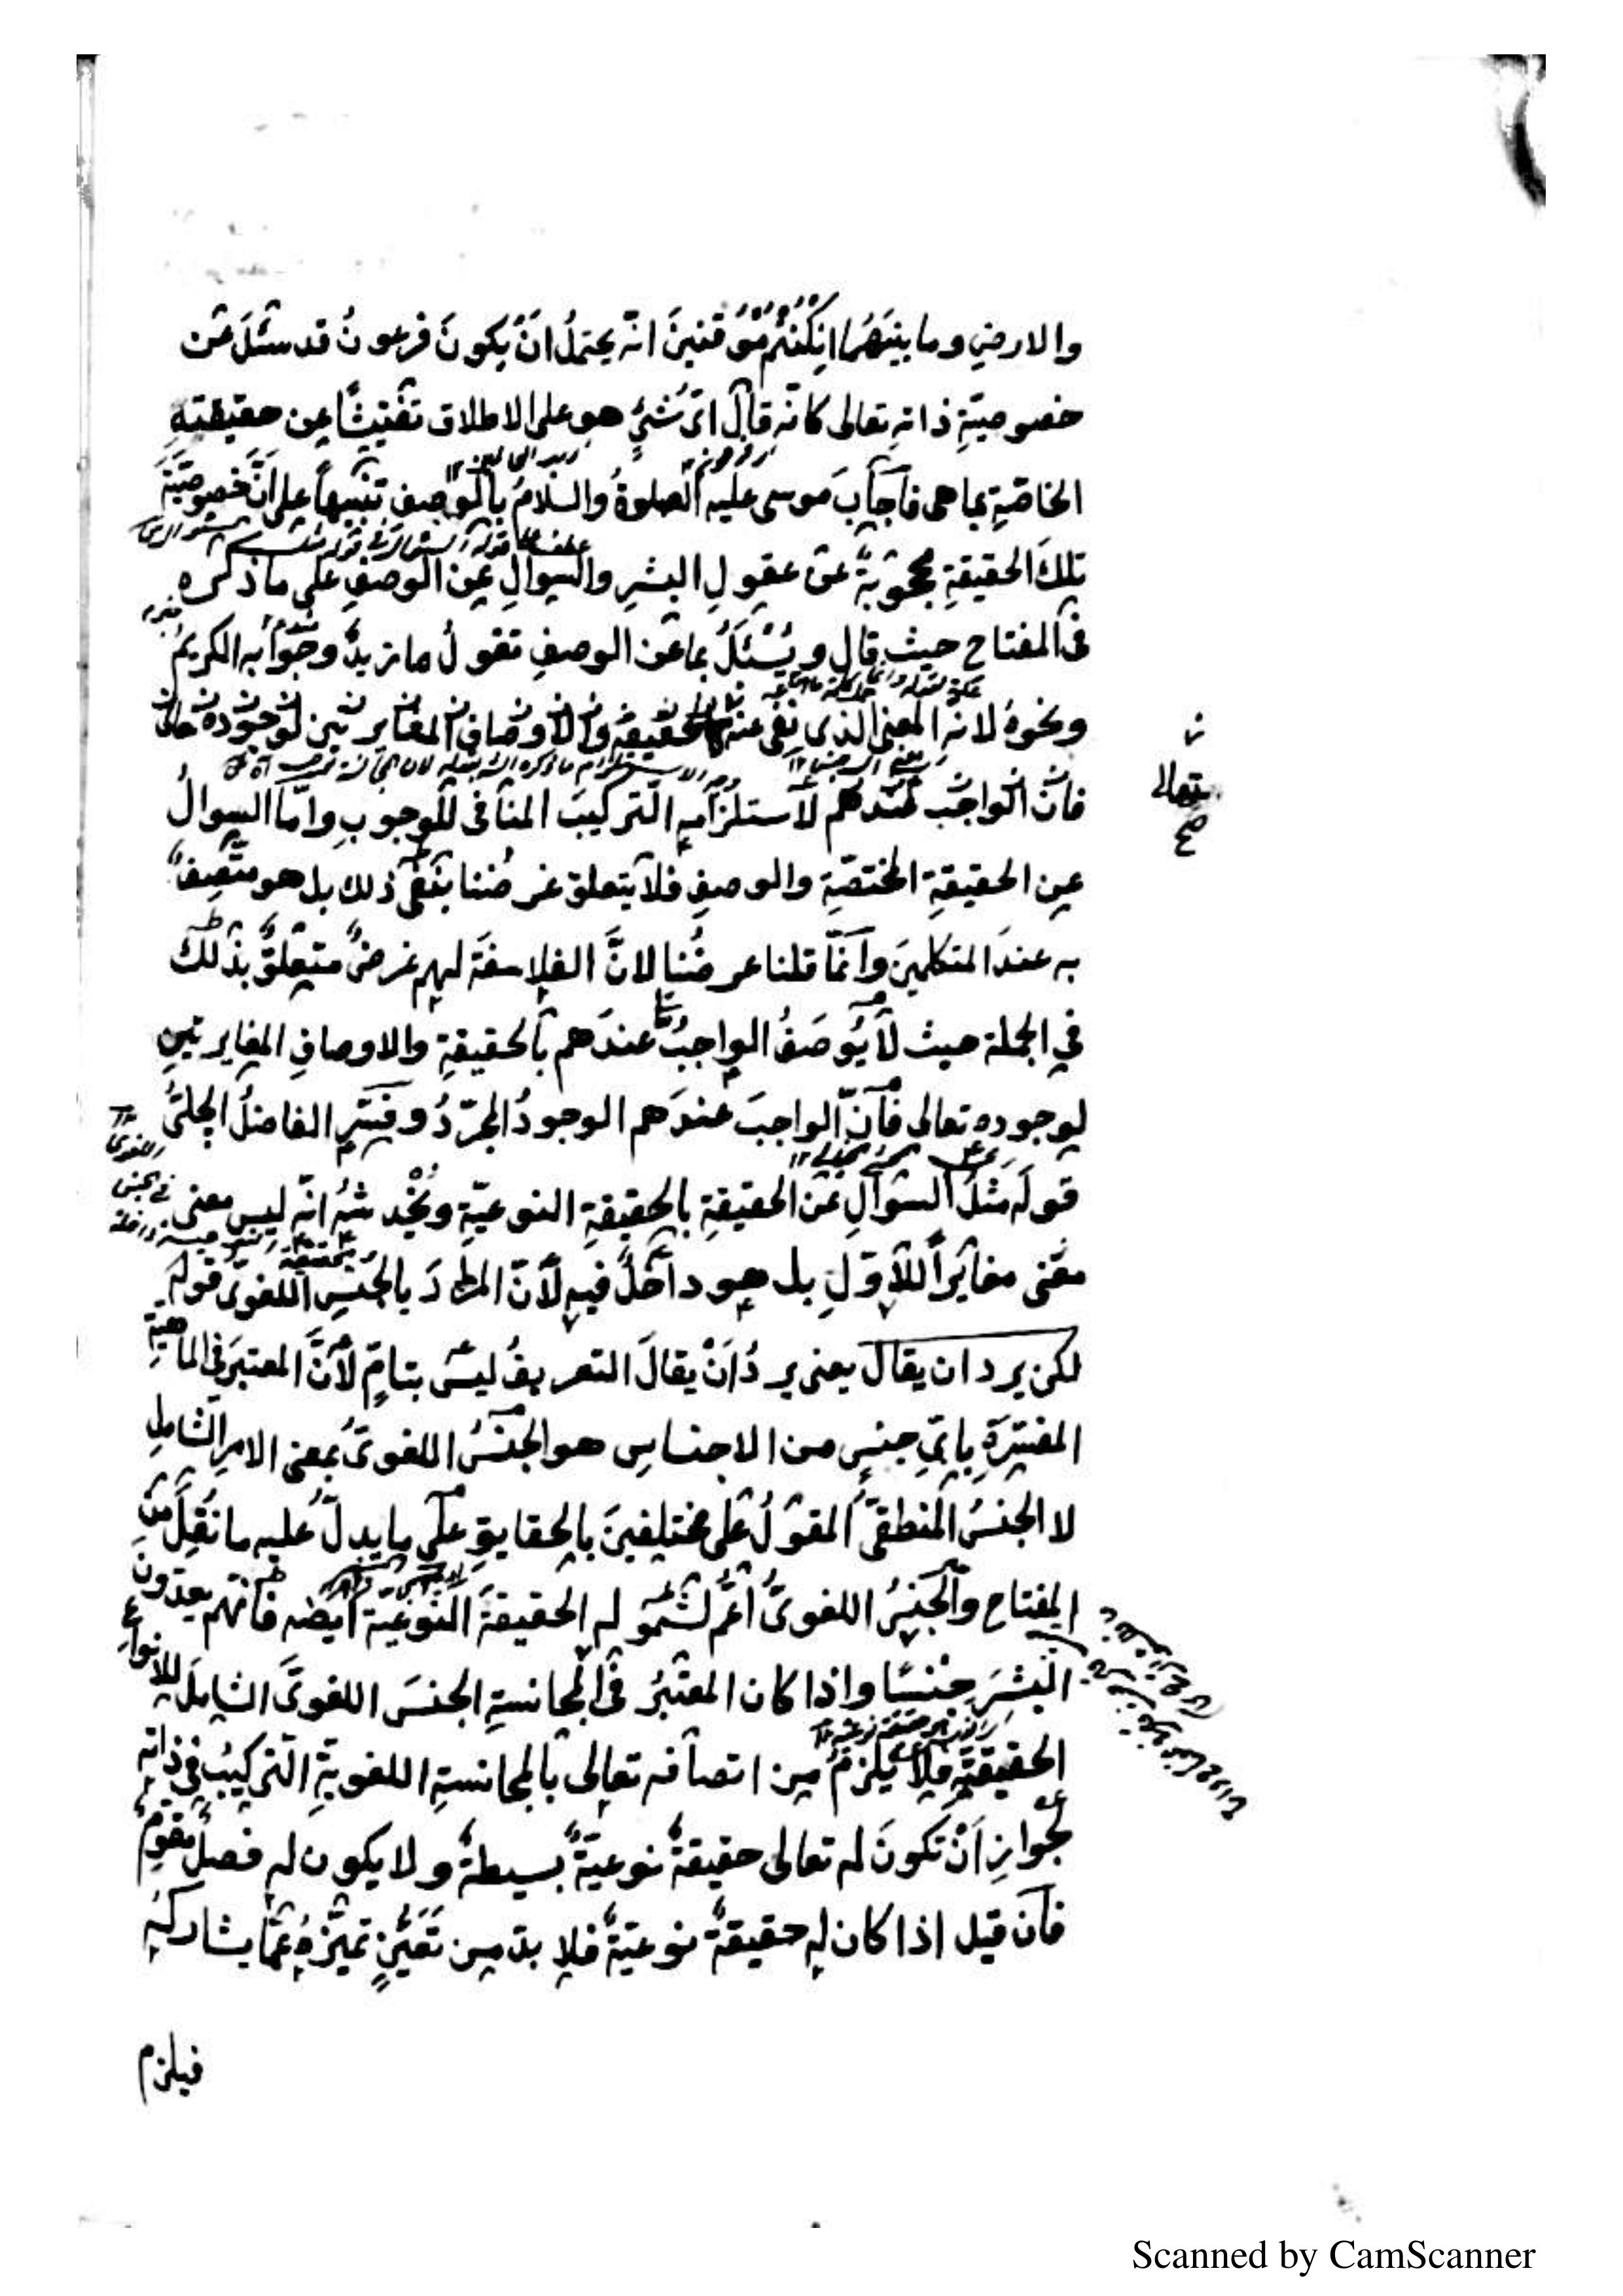 والارضِ وما بينَهُما ان كُنْتُم مُّوْقنينَ انّه يحتملُ اَنْ يكونَ فرعونُ قد سئَلَ عَن
خصوصيّةِ ذاتهِ تعالى كانّه قالَ اىّ شئٍ هو على الاطلاق تفتيشًا عن حقيقتهِ
الخاصّةِ بما هى فاَجابَ موسى عليه الصلوةُ والسّلامُ بالوصفِ تنبيهاً على اَنَّ خصوصيَّةَ
تلكَ الحقيقةِ محجوبةٌ عن عقولِ البشرِ والسوالِ عن الوصفِ على ما ذكره
فى المفتاح حيث قال ويُسْئَلُ بما عن الوصفِ تقولُ ما زيدٌ وجوابُه الكريمُ
ونحوهُ لانه المعنى الذى نفى عنه الحقيقة والاوصاف المغايرتين لوجوده
تعالى صح
فانّ الواجب عندهم لاستلزامهِ التركيبَ المنافى للوجوبِ وامّا السوالُ
عن الحقيقةِ المختصّةِ والوصفِ فلا يتعلق غرضُنا بنفى ذلك بل هو متّصِفٌ
به عندَ المتكلمينَ وانّما قلنا غرضُنا لانَّ الفلاسفةَ لهم غرضٌ متعلّقٌ بذلك
فى الجملة حيث لا يُوصَفُ الواجبُ عندَهم بالحقيقةِ والاوصافِ المغايرتينِ
لوجوده تعالى فانّ الواجبَ عندَهم الوجودُ المجرّدُ وفسّر الفاضلُ الچلپىُّ
قولَه مثلُ السوالِ عن الحقيقةِ بالحقيقةِ النوعيّةِ ويُخْدشهُ انّه ليس معنى
معنى مغايراً للاوّلِ بل هو داخلٌ فيه لاَنّ المرادَ بالجنسِ اللغوىّ قوله
لكن يرد ان يقال يعنى يردُ اَنْ يقالَ التعريفُ ليسَ بتامٍّ لاَنَّ المعتبرَ فى الماهيةِ
المفسّرةِ باىّ جنسٍ من الاجناسِ هو الجنسُ اللغوىّ بمعنى الامرِ الشاملِ
لا الجنسُ المنطقىُّ المقولُ على مختلفينَ بالحقايقِ على ما يدلّ عليه ما نُقِلَ من
المفتاح والجنسُ اللغوىُّ اعمُّ لشموله الحقيقةَ النوعيّةَ ايضه فانّهم يعدّون
البشرَ جنسًا واذا كان المعتبرُ فى المجانسةِ الجنسَ اللغوىَّ الشاملَ للانواع
الحقيقيّةِ فلا يلزمُ من اتصافه تعالى بالمجانسةِ اللغويةِ التركيبُ فى ذاتهِ
لجوازِ اَنْ تكونَ له تعالى حقيقةٌ نوعيّةٌ بسيطةٌ ولا يكون له فصلٌ مقوّمٌ
فان قيل اذا كان له حقيقةٌ نوعيّةٌ فلا بدّ من تعيّنٍ تميّزهُ عمّا يشاركهُ
فيلزم
Scanned by CamScanner